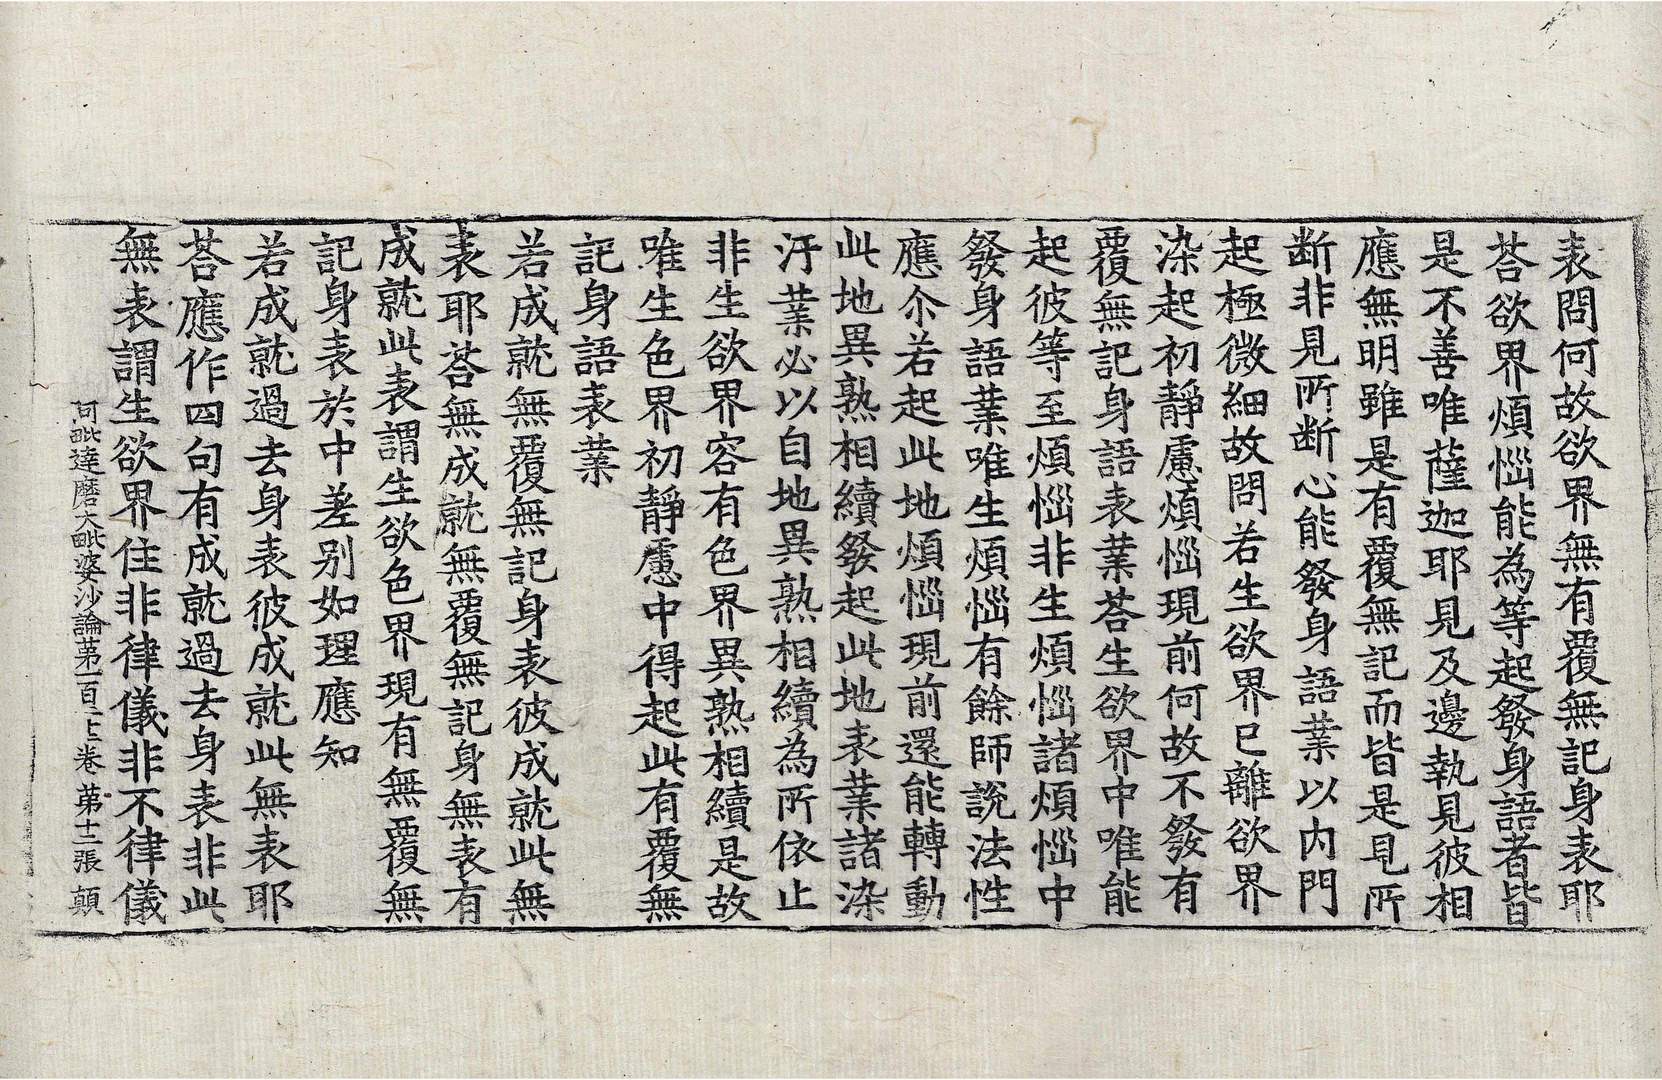 表問何故欲界無有覆無記身表耶
荅欲界煩惱能為等起發身語者皆
是不善唯薩迦耶見及邊執見彼相
應無明雖是有覆無記而皆是見所
断非見所断心能發身語業以内門
起極微細故問若生欲界已離欲界
染起初靜慮煩惱現前何故不發有
覆無記身語表業荅生欲界中唯能
起彼等至煩惱非生煩惱諸煩惱中
發身語業唯生煩惱有餘師說法性
應尒若起此地煩惱現前還能轉動
此地異熟相續發起此地表業諸染
汙業必以自地異熟相續為所依止
非生欲界容有色界異熟相續是故
唯生色界初靜慮中得起此有覆無
記身語表業
若成就無覆無記身表彼成就此無
表耶荅無成就無覆無記身無表有
成就此表謂生欲色界現有無覆無
記身表於中差别如理應知
若成就過去身表彼成就此無表耶
荅應作四句有成就過去身表非此
無表謂生欲界住非律儀非不律儀
阿毗達磨大毗婆沙論第一百二十二卷 第十二張 顛